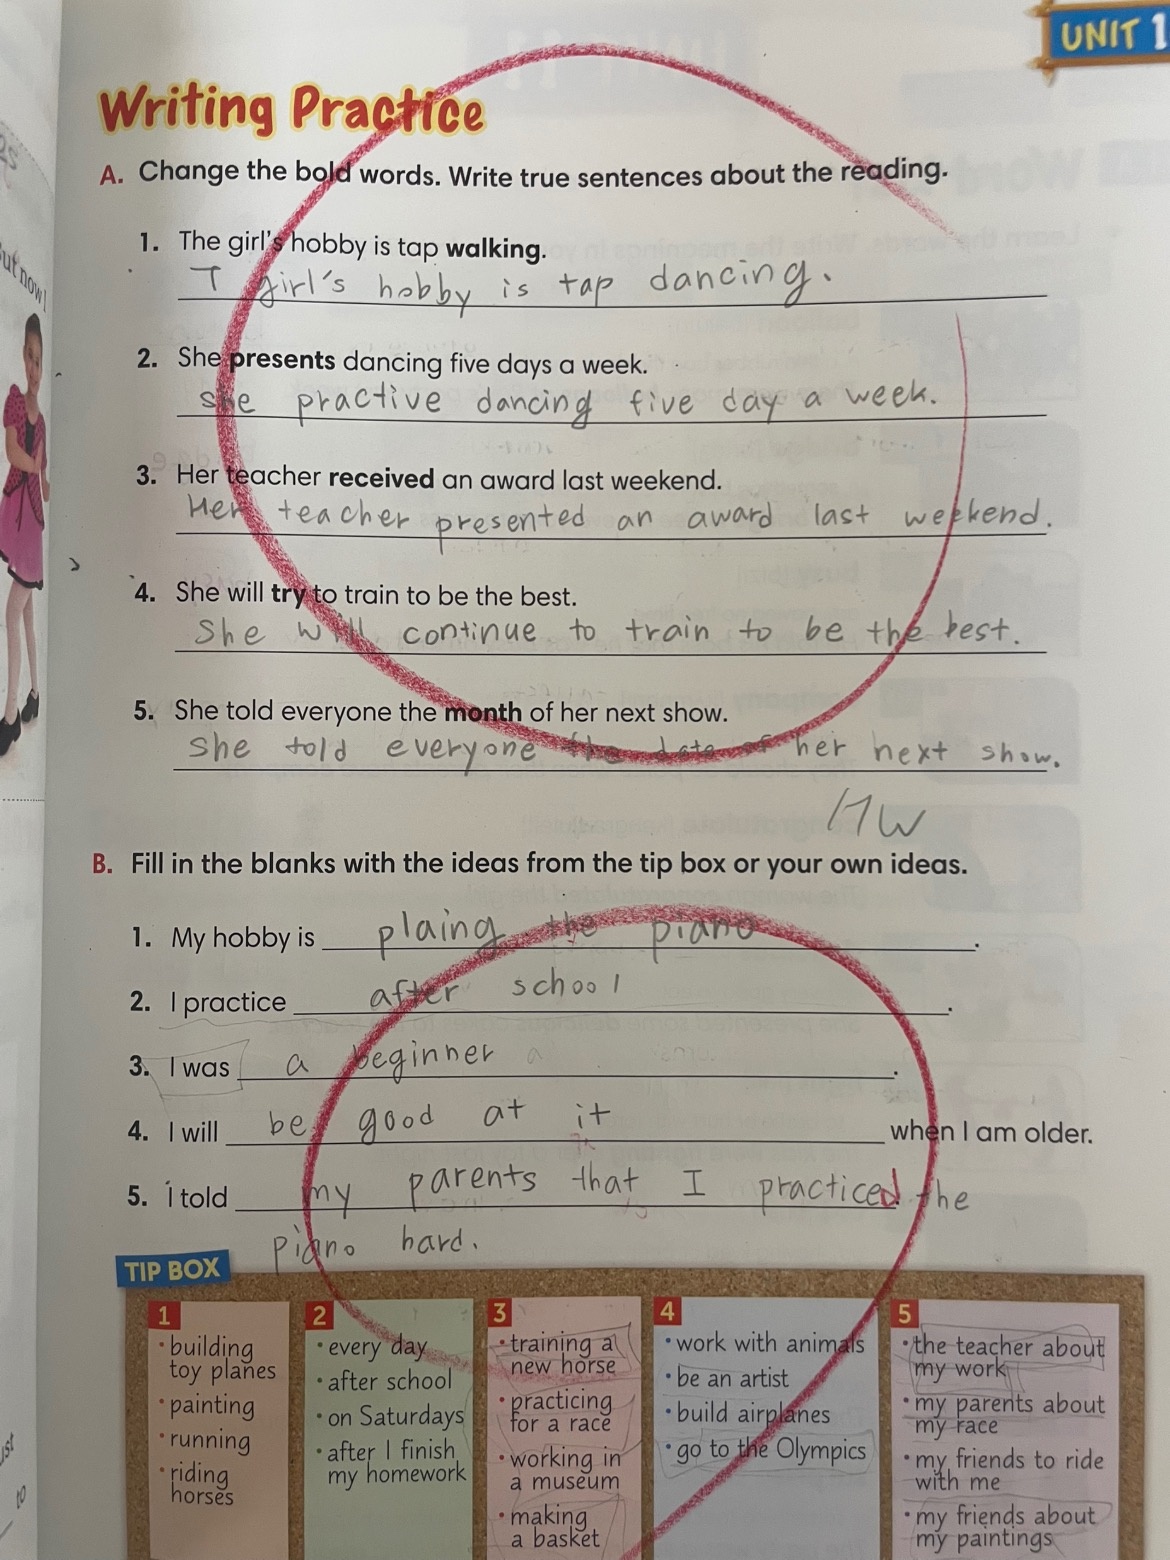 UNIT 1
Writing Practice
A. Change the bold words. Write true sentences about the reading.
1. The girl's hobby is tap walking.
T girl's hobby is tap dancing.
2. She presents dancing five days a week.
she practive dancing five day a week.
3. Her teacher received an award last weekend.
Her teacher presented an award last weekend.
4. She will try to train to be the best.
She will continue to train to be the best.
5. She told everyone the month of her next show.
She told everyone the date of her next show.
HW
B. Fill in the blanks with the ideas from the tip box or your own ideas.
1. My hobby is plaing the piano.
2. I practice after school.
3. I was a beginner a.
4. I will be good at it when I am older.
5. I told my parents that I practiced the
piano hard.
TIP BOX
1
• building
toy planes
• painting
• running
• riding
horses
2
• every day
• after school
• on Saturdays
• after I finish
my homework
3
• training a
new horse
• practicing
for a race
• working in
a museum
• making
a basket
4
• work with animals
• be an artist
• build airplanes
• go to the Olympics
5
• the teacher about
my work
• my parents about
my race
• my friends to ride
with me
• my friends about
my paintings